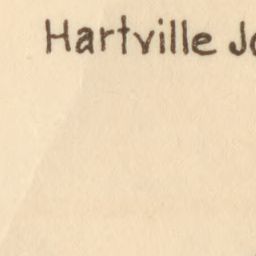 Hartville Jo